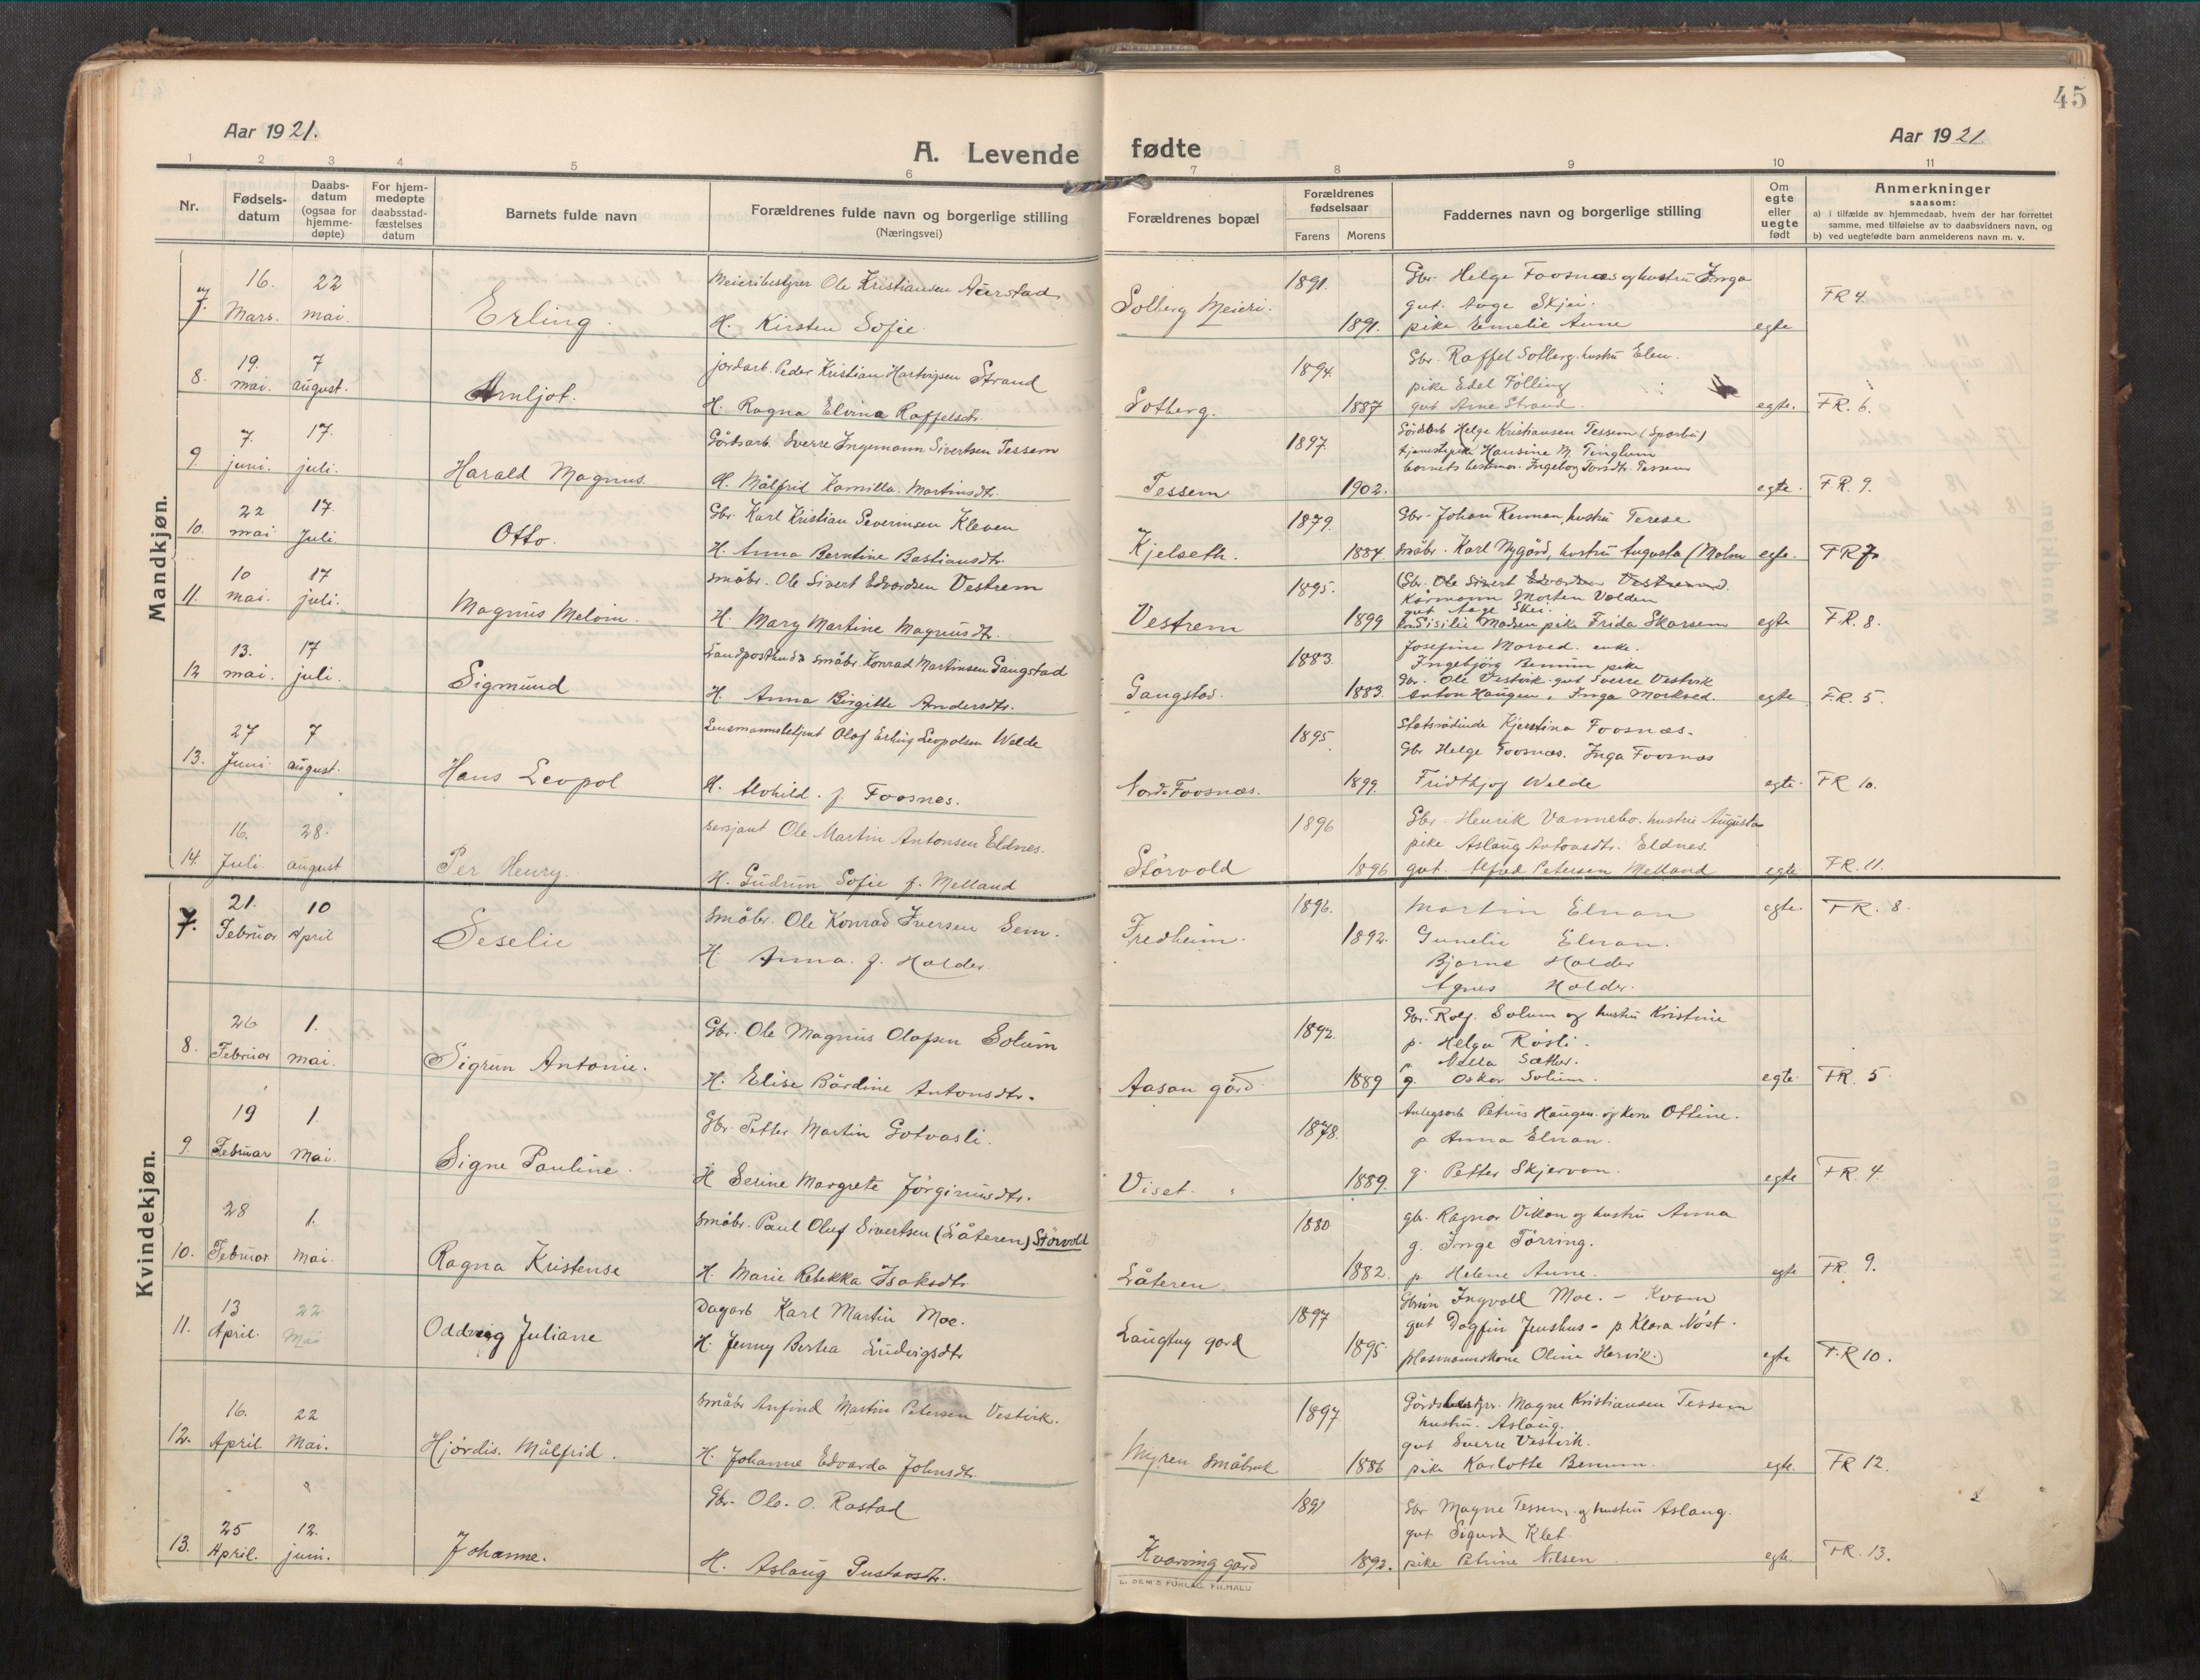 45
Aar 1921.
A. Levende fødte
Aar 1921
1 2 3 4 5 6 7 8 9 10 11
Nr.
Fødsels-
datum
Daabs-
datum
(ogsaa for
hjemme-
døpte)
For hjem-
medøpte
daabsstad-
fæstelses
datum
Barnets fulde navn
Forældrenes fulde navn og borgerlige stilling
(Næringsvei)
Forældrenes bopæl
Forældrenes
fødselsaar
Farens Morens
Faddernes navn og borgerlige stilling
Om
egte
eller
uegte
født
Anmerkninger
saasom:
a) i tilfælde av hjemmedaab, hvem der har forrettet
samme, med tilføielse av to daabsvidners navn, og
b) ved uegtefødte barn anmelderens navn m. v.
Mandkjøn.
7. 16. Mars. 22 mai. Erling.
Meieribestyrer Ole Kristiansen Aurstad
H. Kirsten Sofie.
Solberg Meieri. 1891. 1891.
Gbr. Helge Foosnæs og hustru Inga
gut. Aage Skjei.
pike Emelie Aune
egte FR 4.
8. 19. mai. 7 august. Arnljot.
jordarb. Peder Kristian Hartvigsen Strand
H. Ragna Elvina Raffelsdtr.
Solberg. 1894. 1887
Gbr. Raffel Solberg. hustru Elen.
pike Edel Følling
gut Arne Strand.
egte. FR. 6.
9. 7. juni. 17. juli. Harald Magnus
Gårdsarb. Sverre Ingemann Sivertsen Tessem
H. Målfrid Kamilla. Martinsdtr.
Tessem 1897. 1902.
Gårdarb Helge Kristiansen Tessem (Sparbu)
tjenestepike Hansine M. Tinglum
barnets bestemor. Ingeborg Tessem
egte. FR. 9.
10. 22 mai 17. Juli. Otto.
Gbr. Karl Kristian Severinsen Kleven
H. Anna Berntine Bastiansdtr.
Kjelseth. 1879. 1884
Gbr. Johan Renman, hustru Terese
småbr. Karl Nygård, hustru Augusta (Malm
egte. FR 7.
11. 10 mai. 17 juli. Magnus Meloin.
småbr. Ole Sivert Edvardsen Vestrem
H. Mary Martine Magnusdtr.
Vestrem 1895. 1899
(Gbr. Ole Sivert Edvardsen Vestrem).
Kårmann Morten Valden
gut Aage Skei.
Sisilie Madsen pike Frida Skarsem
egte FR. 8.
12 13. mai. 17 juli. Sigmund
Landpostbud småbr. Konrad Martinsen Gangstad
H. Anna Birgitte Andersdtr.
Gangstad. 1883. 1883.
Josefine Morved. enke.
Ingebjörg Benum pike
Gbr. Ole Vestvik. gut Sverre Vestvik
Anton Haugen, Inga Morkved.
egte FR. 5.
13. 27 Juni 7 august. Hans Leopol
Lensmannsbetjent Olaf Erling Leopolsen Welde
H. Alvhild. f. Foosnes.
Nord-Foosnæs. 1895 1899.
Statsrådinde Kjerstina Foosnæs.
Gbr Helge Foosnæs. Inga Foosnæs
Fridthjof Welde
egte. FR 10.
14. 16. Juli. 28. august Per Henry.
sersjant Ole Martin Antonsen Eldnes.
H. Gudrun Sofie f. Melland
Störvold 1896 1896
Gbr. Henrik Vannebo. hustru Augusta
pike Aslaug Antonsdtr. Eldnes.
gut. Alfred Petersen Melland
egte FR. 11.
Kvindekjøn.
7. 21. Februar 10 April Seselie
Småbr. Ole Konrad Iversen Sem.
H. Anna. f. Holder
Fredheim. 1896. 1892.
Martin Elnan
Gunelie Elnan.
Bjarne Holder
Agnes Holder.
egte. FR. 8.
8. 26 Februar 1. mai. Sigrun Antonie.
Gbr. Ole Magnus Olafsen Solum
H. Elise Bårdine Antonsdtr.
Aasan gård 1892. 1889
Gbr. Rolf. Solum og hustru Kristine
p. Helga Røsli.
p. Sæther.
g. Oskar Solum.
egte. FR. 5
9. 19 Februar 1. Mai. Signe Pauline.
Gbr. Petter Martin Gotvasli.
H Serine Margrete Jörginusdtr.
Viset. 1878. 1889.
Anlegsarb Petrus Haugen. og kone Ottine.
p Anna Elnan.
g. Petter Skjervan.
egte FR. 4.
10. 28 Februar 1. Mai. Ragna Kristense
Småbr. Paul Oluf Sivertsen (Låteren) Störvold
H. Marie Rebekka Isaksdtr.
Låteren. 1880 1882.
gbr. Ragnar Vikan og hustru Anna
g. Inge Törring.
p. Helene Aune.
egte FR. 9.
11. 13 April. 22 Mai Oddveig Juliane
Dagarb Karl Martin Moe.
H. Jenny Bertea Ludvigsdtr
Laugtug gård 1897 1895
Ingvald Moe. - Kvam
gut Dagfin Jenshus - p Klara Nöst.
plasmannskone Olina Hervik.)
egte F.R 10.
12. 16. April. 22 Mai. Hjördis. Målfrid.
Småbr Anfind Martin Petersen Vestvik.
H. Johanne Edvarda Johnsdtr.
Myren Småbruk 1897 1886
Gårdsbestyr. Magne Kristiansen Tessem
hustru. Aslaug.
gut Sverre Vestvik.
pike Karlotte Benum.
egte. FR 12.
13. 25 April. 12. juni. Johanne.
Gbr. Ole. O. Rostad
H. Aslaug Gustavsdtr.
Kvarving gård 1891 1892.
Gbr Magne Tessem, og hustru Aslaug.
gut Sigurd Klet.
pike Petrine Nilsen
egte. FR. 13.